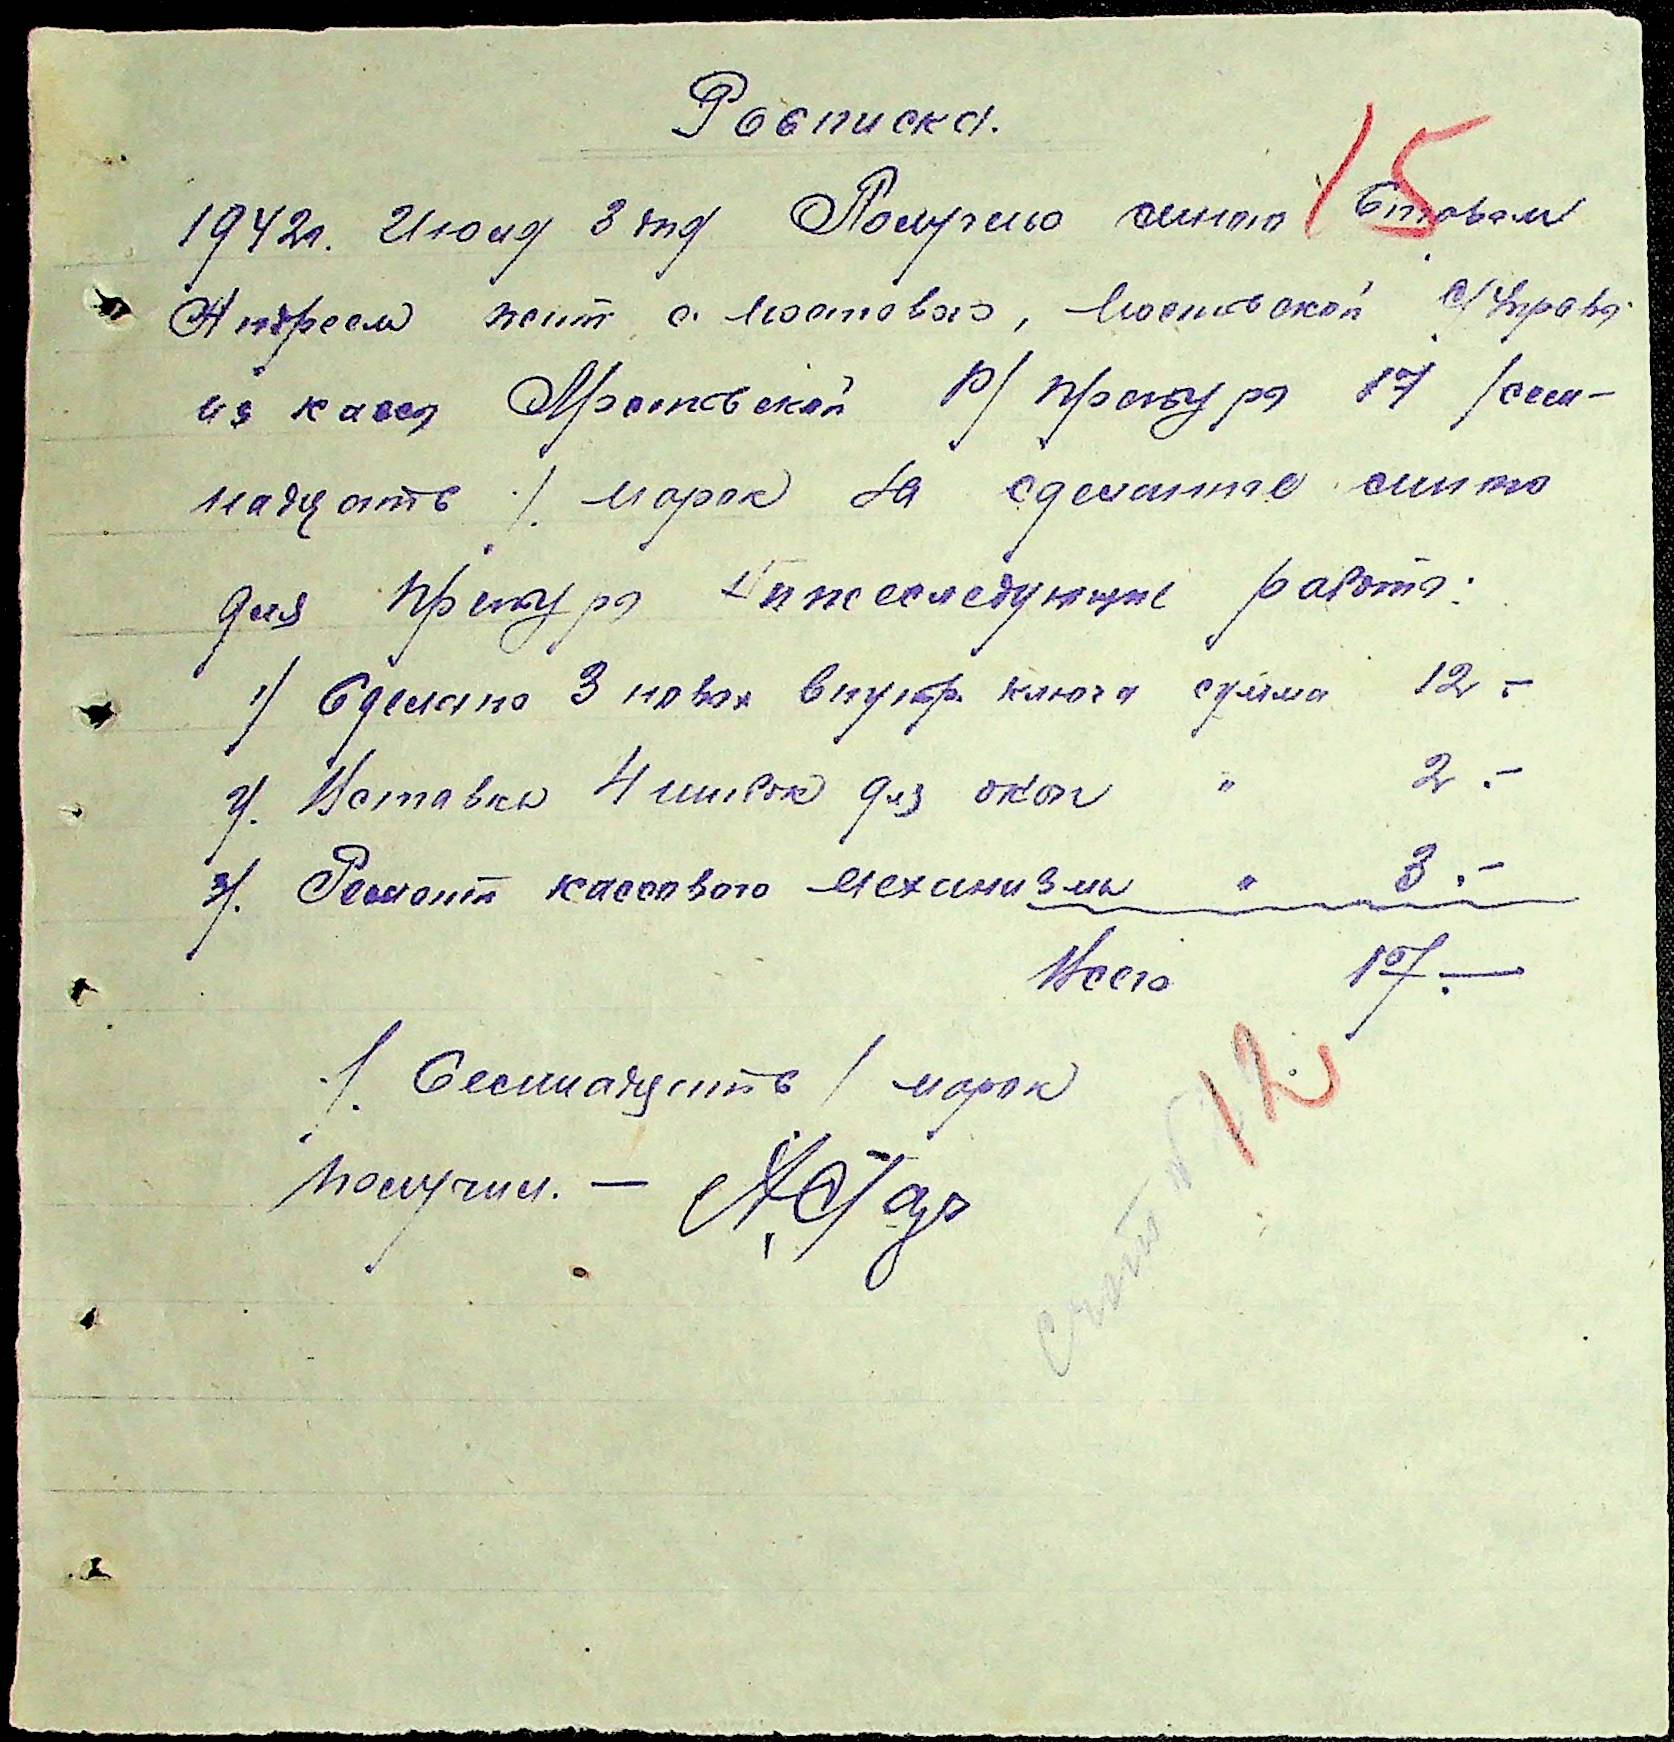 Росписка.
15
1942г. Июля 3 дня Получено мною Стовем
Андреем жит. с. Мостовое, Мостовской С/Управы
из кассы Мостовской Р/Управы 17 /сем-
надцать /. марок за сделанные мною
для Управы нижеследующие работы:
1/ Сделано 3 новых внутр. ключа сумма 12.-
2/. Вставка 4 шибок для окон " 2.-
3/. Ремонт кассового механизма " 3.-
Всего 17.-
/. Семнадцать / марок
получил. -
счет № 12